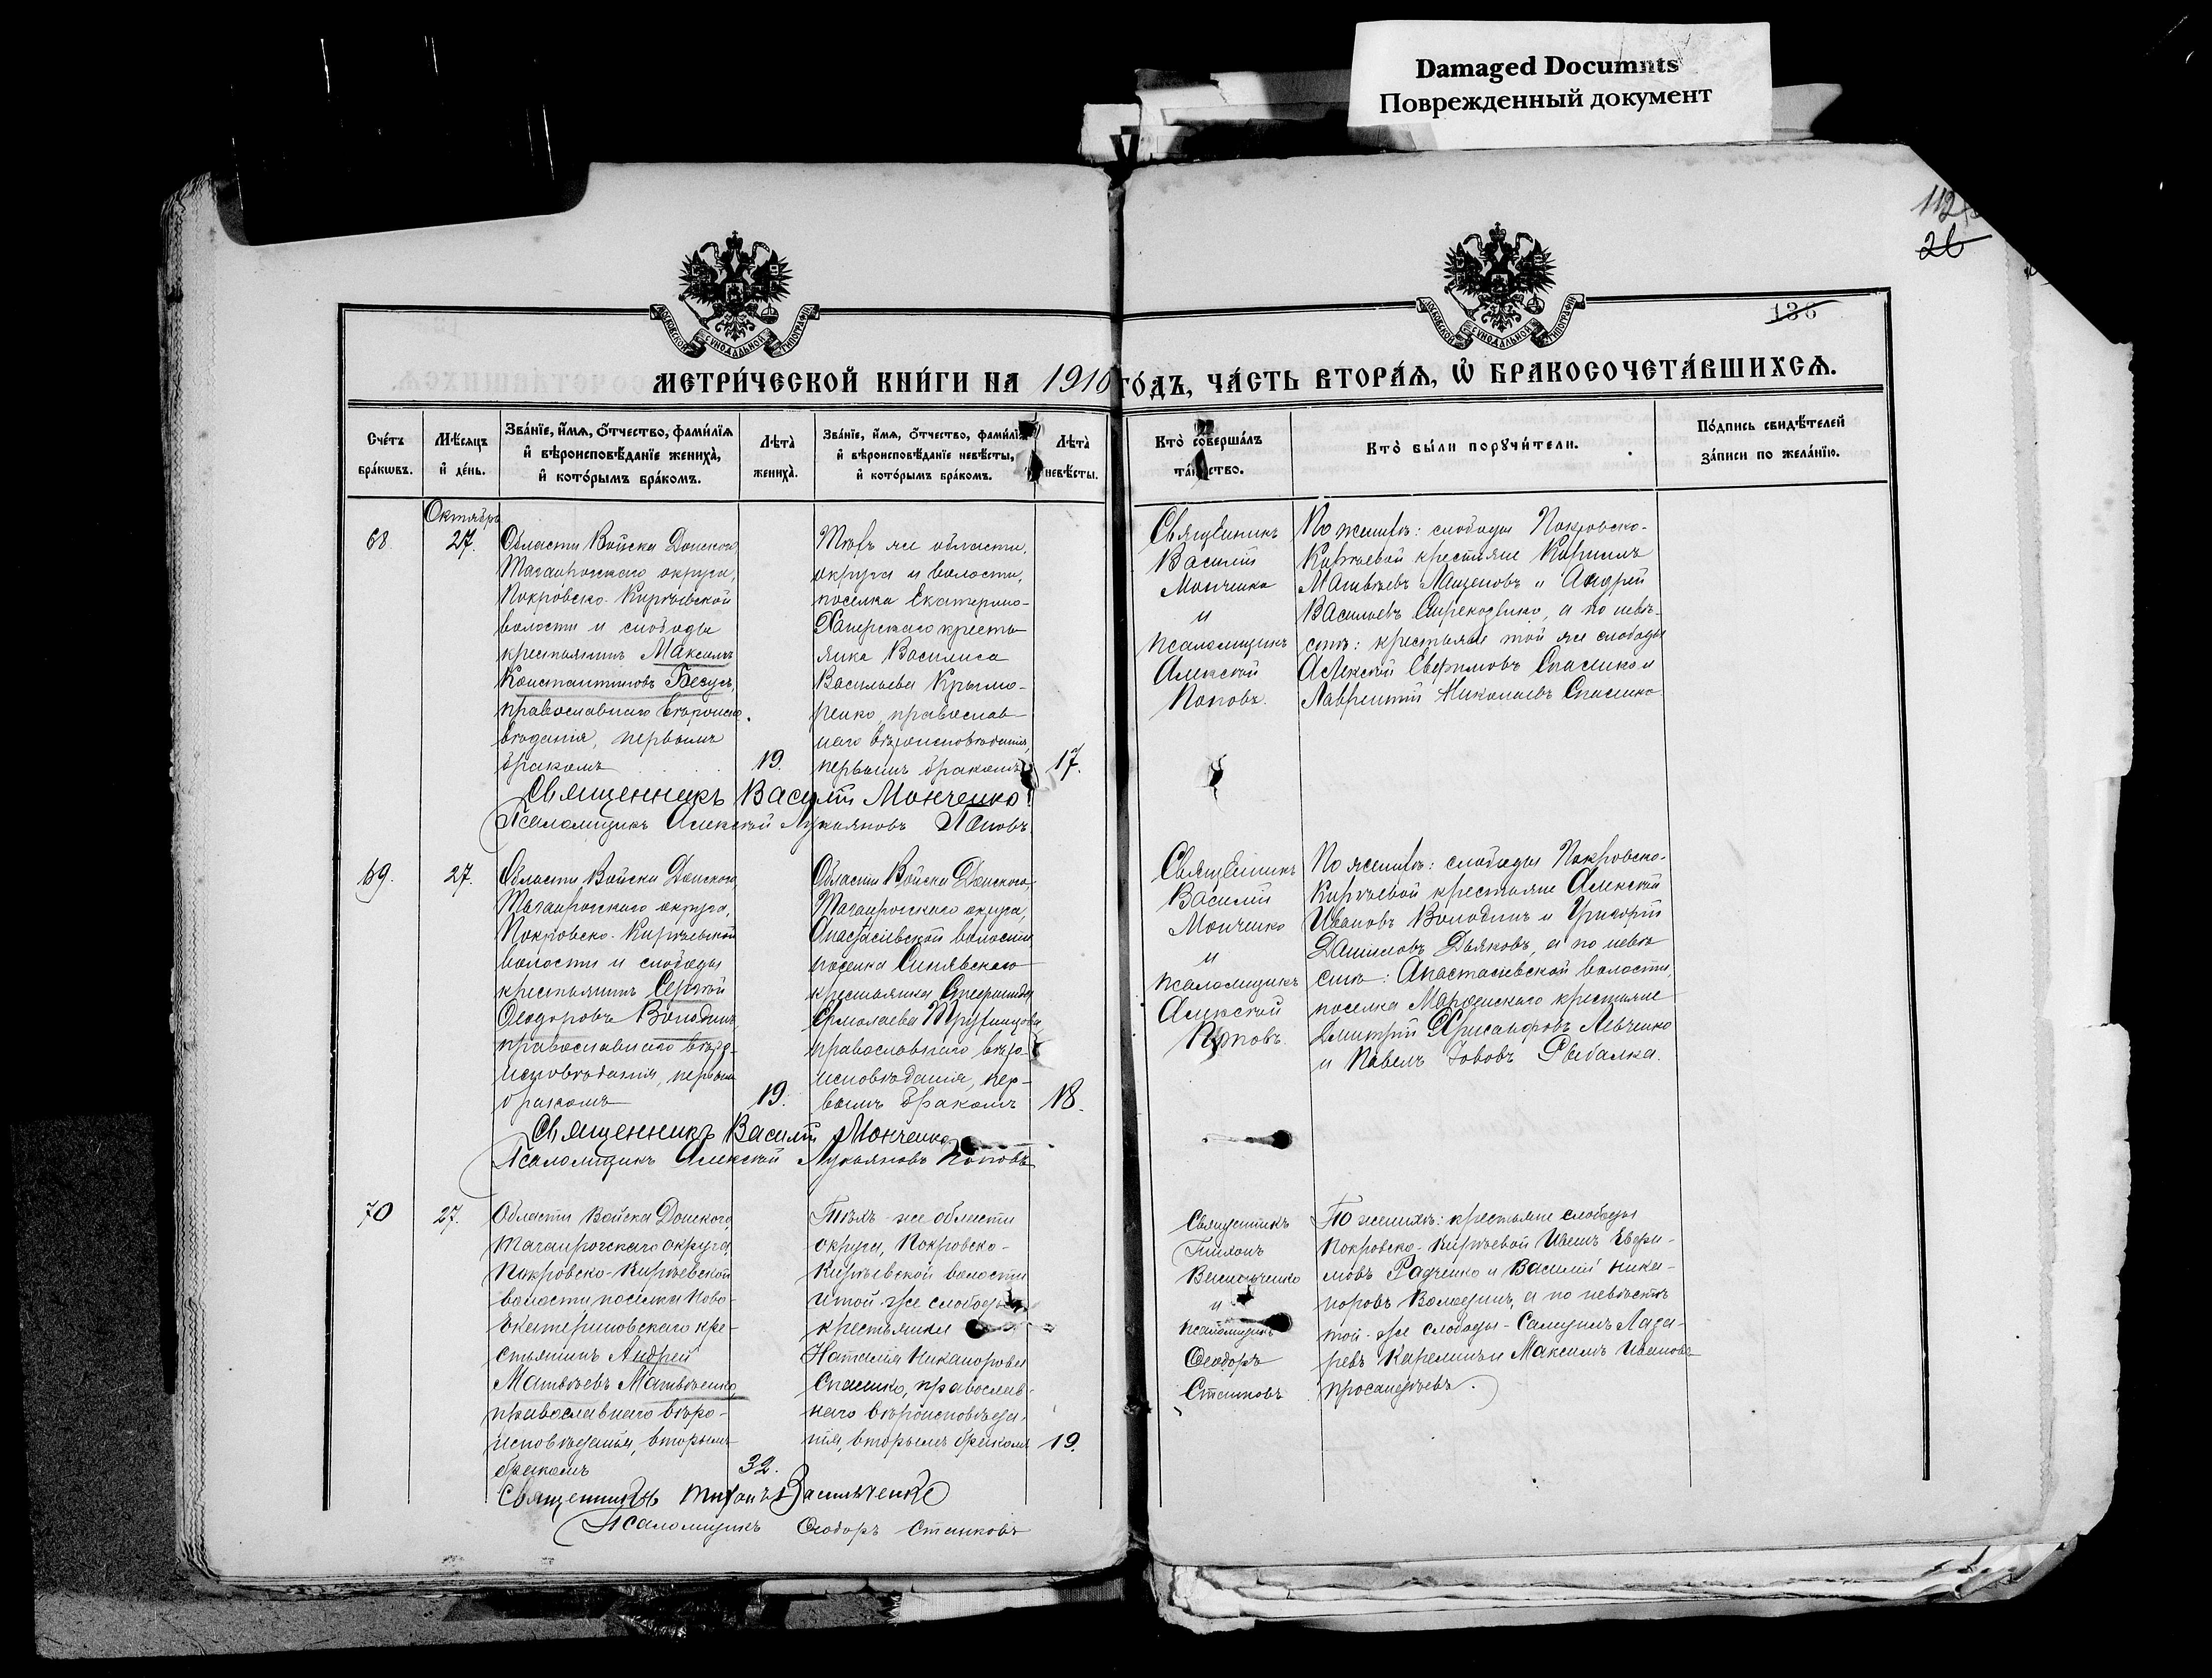 Damaged Documnts
Поврежденный документ
112
26
136
МОСКОВСКОЙ СѴНОДАЛЬНОЙ ТИПОГРАФІИ
МОСКОВСКОЙ СѴНОДАЛЬНОЙ ТИПОГРАФІИ
МЕТРИ́ЧЕСКОЙ КНИ́ГИ НА 1910 ГО́ДЪ, ЧА́СТЬ ВТОРА́Ѧ, Ѡ҆ БРАКОСОЧЕТА́ВШИХСѦ.
Сче́тъ
бра́кѡвъ.
Мѣ́сяцъ
и҆ де́нь.
Зва́нїе, и҆́мѧ, ѻ҆́тчество, фами́лїѧ
и҆ вѣроисповѣ́данїе жениха̀,
и҆ кото́рымъ бра́комъ.
Лѣта̀
жениха̀.
Зва́нїе, и҆́мѧ, ѻ҆́тчество, фами́лїѧ
и҆ вѣроисповѣ́данїе невѣ́сты,
и҆ кото́рымъ бра́комъ.
Лѣта̀
невѣ́сты.
Кто̀ соверша́лъ
та́инство.
Кто̀ бы́ли порꙋчи́тели.
По́дпись свидѣ́телей
за́писи по жела́нїю.
Октябрь
68.
27.
Области Войска Донского
Таганрогскаго округа,
Покровско-Кирѣевской
волости и слободы
крестьянинъ Максимъ
Константиновъ Бесусъ,
православнаго вѣроиспо-
вѣданія, первымъ
бракомъ
19.
Тѣхъ же области,
округа и волости,
поселка Екатерино-
Хаперскаго кресть-
янка Василиса
Васильева Крымо-
ренко, православ-
наго вѣроисповѣданія,
первымъ бракомъ
17.
Священникъ
Василій
Монченко
и
псаломщикъ
Алексѣй
Поповъ.
По женихѣ: слободы Покровско-
Кирѣевой крестьяне Кириллъ
Матвѣевъ Мащеновъ и Андрей
Васильевъ, а по невѣ-
стѣ: крестьяне той же слободы
Алексѣй Евфимовъ Спасенко и
Лаврентій Николаевъ Спасенко
Священникъ Василій Монченко
Псаломщикъ Алексѣй Лукьяновъ Поповъ
69.
27.
Области Войска Донского,
Таганрогскаго округа,
Покровско-Кирѣевской
волости и слободы
крестьянинъ Сергѣй
Ѳеодоровъ Володинъ,
православнаго вѣро-
исповѣданія, первымъ
бракомъ
19.
Области Войска Донского,
Таганрогскаго округа,
Анастасіевской волости
поселка Синявскаго
крестьянка Стефанида
Ермолаева
православнаго вѣро-
исповѣданія, пер-
вымъ бракомъ
18.
Священникъ
Василій
Монченко
и
псаломщикъ
Алексѣй
Поповъ.
По женихѣ: слободы Покровско-
Кирѣевой крестьяне Алексѣй
Ивановъ Володинъ и Григорій
Даниловъ Дьяковъ, а по невѣ-
стѣ: Анастасіевской волости
поселка Марфинскаго крестьяне
Дмитрій Хрисанфовъ Левченко
и Павелъ Іововъ Рыбалка.
Священникъ Василій Монченко
Псаломщикъ Алексѣй Лукьяновъ Поповъ
70
27.
Области Войска Донского,
Таганрогскаго округа,
Покровско-Кирѣевской
волости поселка Ново-
Екатериновскаго кре-
стьянинъ Андрей
Матвѣевъ Матвѣенко
православнаго вѣро-
исповѣданія, вторымъ
бракомъ
32.
Тѣхъ-же области
округа, Покровско-
Кирѣевской волости
и той-же слободы
крестьянка
Наталія Никанорова
Спасенко, православ-
наго вѣроисповѣда-
нія, вторымъ бракомъ
19.
Священникъ
Тихонъ
Васильченко
и
псаломщикъ
Ѳеодоръ
Станковъ
По женихѣ: крестьяне слободы
Покровско-Кирѣевой Иванъ Евфи-
мовъ Радченко и Василій Ника-
норовъ Володинъ, а по невѣстѣ
той-же слободы - Самуилъ Лаза-
ревъ Карелинъ и Максимъ Ивановъ
Просандѣевъ.
Священникъ Тихонъ Васильченко
Псаломщикъ Ѳеодоръ Станковъ